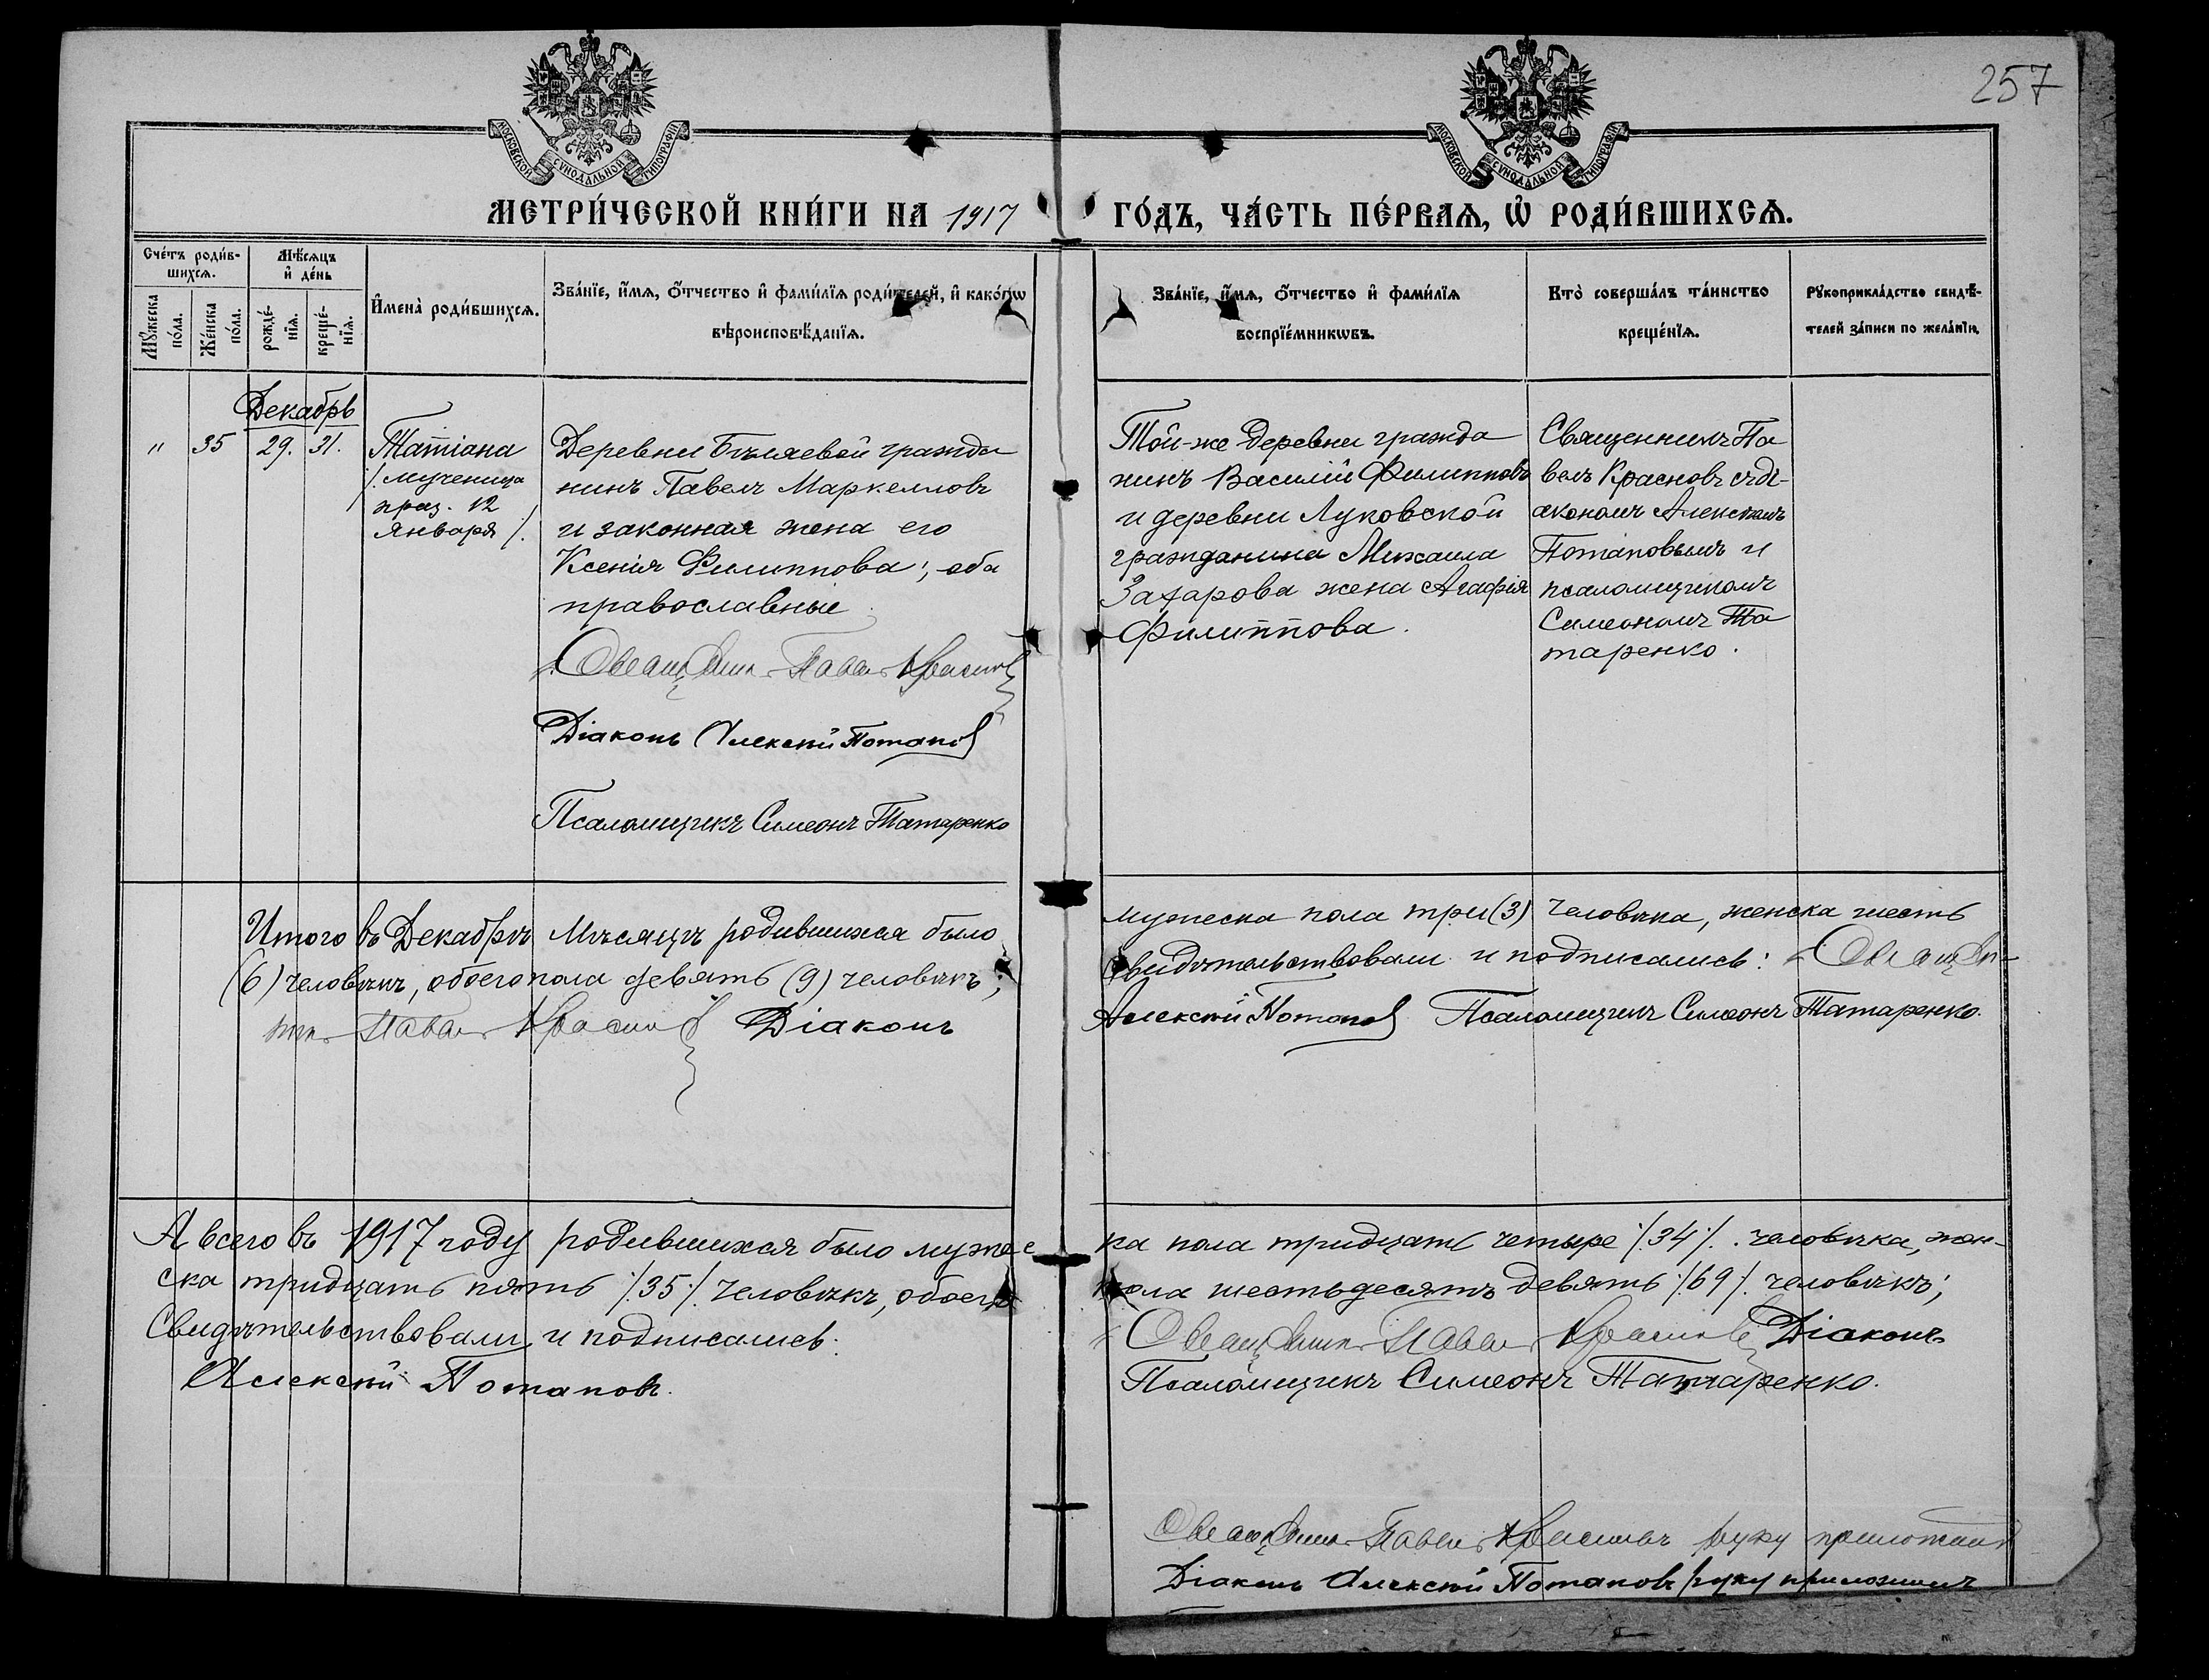 257
МОСКОВСКОЙ СѴНОДАЛЬНОЙ ТИПОГРАФІИ
МОСКОВСКОЙ СѴНОДАЛЬНОЙ ТИПОГРАФІИ
МЕТРИ́ЧЕСКОЙ КНИ́ГИ НА 1917 ГО́ДЪ, ЧА́СТЬ ПЕ́РВАѦ, Ѽ РОДИ́ВШИХСѦ.
Сче́тъ роди́в-
шихсѧ.
Мꙋ́жеска
по́ла.
Же́нска
по́ла.
Мѣ́сѧцъ
и҆ де́нь
рожде́-
нїѧ.
креще́-
нїѧ.
И҆мена̀ роди́вшихсѧ.
Зва́нїе, и҆́мѧ, ѻ҆́тчество и҆ фами́лїѧ роди́телей, и҆ како́гѡ
вѣроисповѣ́данїѧ.
Зва́нїе, и҆́мѧ, ѻ҆́тчество и҆ фами́лїѧ
воспрїе́мникѡвъ.
Кто̀ соверша́лъ та́инство
креще́нїѧ.
Рꙋкоприкла́дство свидѣ́-
телей за́писи по жела́нїи.
Декабрь
" 35 29. 31.
Татіана
/. мученица
праз. 12
января /.
Деревни Бѣляевой гражда
нинъ Павелъ Маркелловъ
и законная жена его
Ксенія Филиппова; оба
православные
Священникъ Павелъ Красновъ
Діаконъ Алексѣй Потаповъ
Псаломщикъ Симеонъ Татаренко
Той-же деревни гражда
нинъ Василій Филипповъ
и деревни Луковской
гражданина Михаила
Захарова жена Агафія
Филиппова.
Священникъ Па
велъ Красновъ съ ді-
акономъ Алексѣемъ
Потаповымъ и
псаломщикомъ
Симеономъ Та
таренко.
Итого въ Декабрѣ Мѣсяцѣ родившихся было мужеска пола три (3) человѣка, женска шесть
(6) человѣкъ, обоего пола девять (9) человѣкъ; Свидѣтельствовали и подписались: Священ-
никъ Павелъ Красновъ Діаконъ Алексѣй Потаповъ Псаломщикъ Симеонъ Татаренко.
А всего въ 1917 году родившихся было мужес ка пола тридцать четыре /.34./. человѣка, жен-
ска тридцать пять /.35./. человѣкъ, обоего пола шестьдесятъ девять /.69/. человѣкъ;
Свидѣтельствовали и подписались: Священникъ Павелъ Красновъ Діаконъ
Алексѣй Потаповъ. Псаломщикъ Симеонъ Татаренко.
Священникъ Павелъ Красновъ руку приложилъ
Діаконъ Алексѣй Потаповъ руку приложилъ